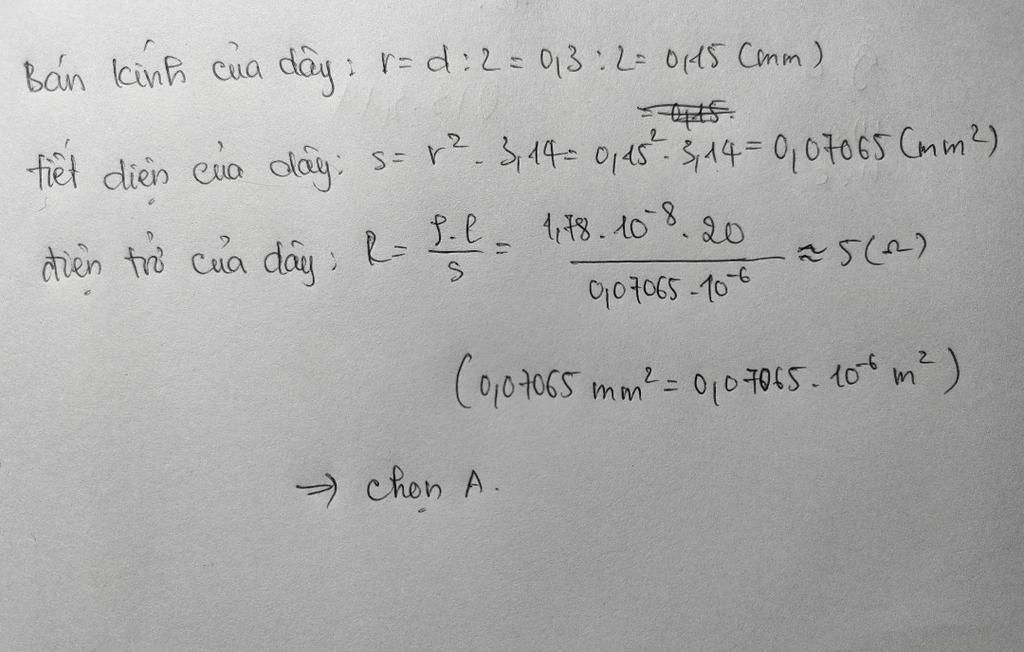 Bán kính của dây: r = d : 2 = 0,3 : 2 = 0,15 (mm)
tiết diện của dây: s = r². 3,14 = 0,15². 3,14 = 0,07065 (mm²)
điện trở của dây: R = \frac{ρ.l}{s} = \frac{1,78.10⁻⁸.20}{0,07065.10⁻⁶} ≈ 5 (Ω)
(0,07065 mm² = 0,07065.10⁻⁶ m²)
⇒ chọn A.